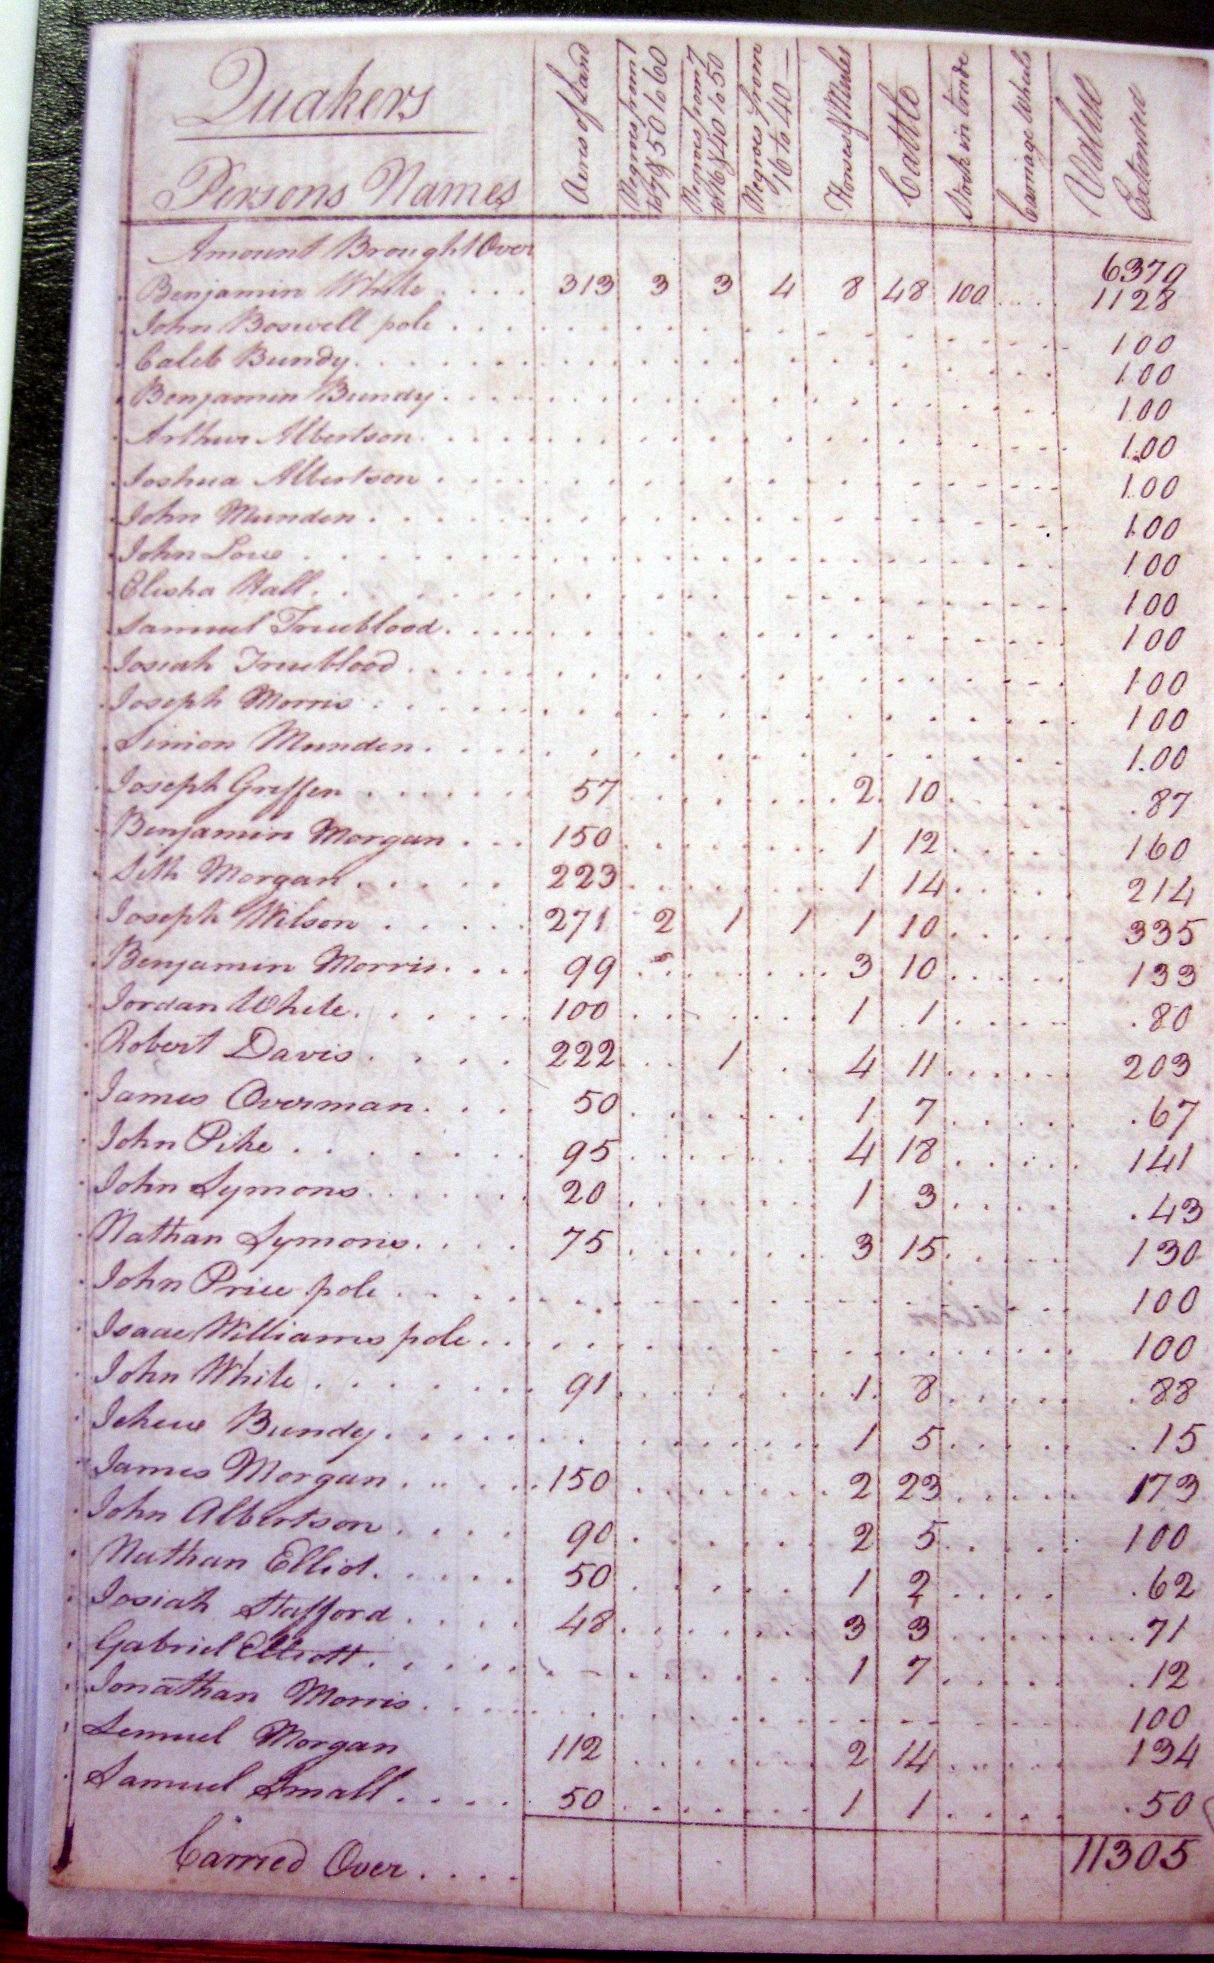 Quakers
Persons Names
Acres of Land
Negroes from 7 to 16 & 50 to 60
Negroes from 7 to 16 & 40 to 50
Negroes from 16 to 40
Horses & Mules
Cattle
Stock in trade
Carriage Wheels
Value Extended
Amount Brought Over 6379
Benjamin White 313 3 3 4 8 48 100 1128
John Boswell pole 100
Caleb Bundy 100
Benjamin Bundy 100
Arthur Albertson 100
Joshua Albertson 100
John Munden 100
John Love 100
Elisha Hall 100
Samuel Trueblood 100
Josiah Trueblood 100
Joseph Morris 100
Simon Munden 100
Joseph Griffen 57 2 10 87
Benjamin Morgan 150 1 12 160
Seth Morgan 223 1 14 214
Joseph Wilson 271 2 1 1 1 10 335
Benjamin Morris 99 3 10 133
Jordan White 100 1 1 80
Robert Davis 222 1 4 11 203
James Overman 50 1 7 67
John Pike 95 4 18 141
John Symons 20 1 3 43
Nathan Symons 75 3 15 130
John Price pole 100
Isaac Williams pole 100
John White 91 1 8 88
Jehue Bundy 1 5 15
James Morgan 150 2 23 173
John Albertson 90 2 5 100
Nathan Elliot 50 1 2 62
Josiah Stafford 48 3 3 71
Gabriel Elliott 1 7 12
Jonathan Morris 100
Lemuel Morgan 112 2 14 134
Samuel Small 50 1 1 50
Carried Over 11305